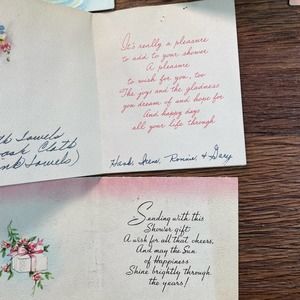 It's really a pleasure
to add to your shower
A pleasure
to wish for you, too
The joys and the gladness
you dream of and hope for
And happy days
all your life through
Hank, Irene, Ronnie, & Gary
Towels
Cloth
Towels)
Sending with this
Shower gift
A wish for all that cheers,
And may the Sun
of Happiness
Shine brightly through
the years!